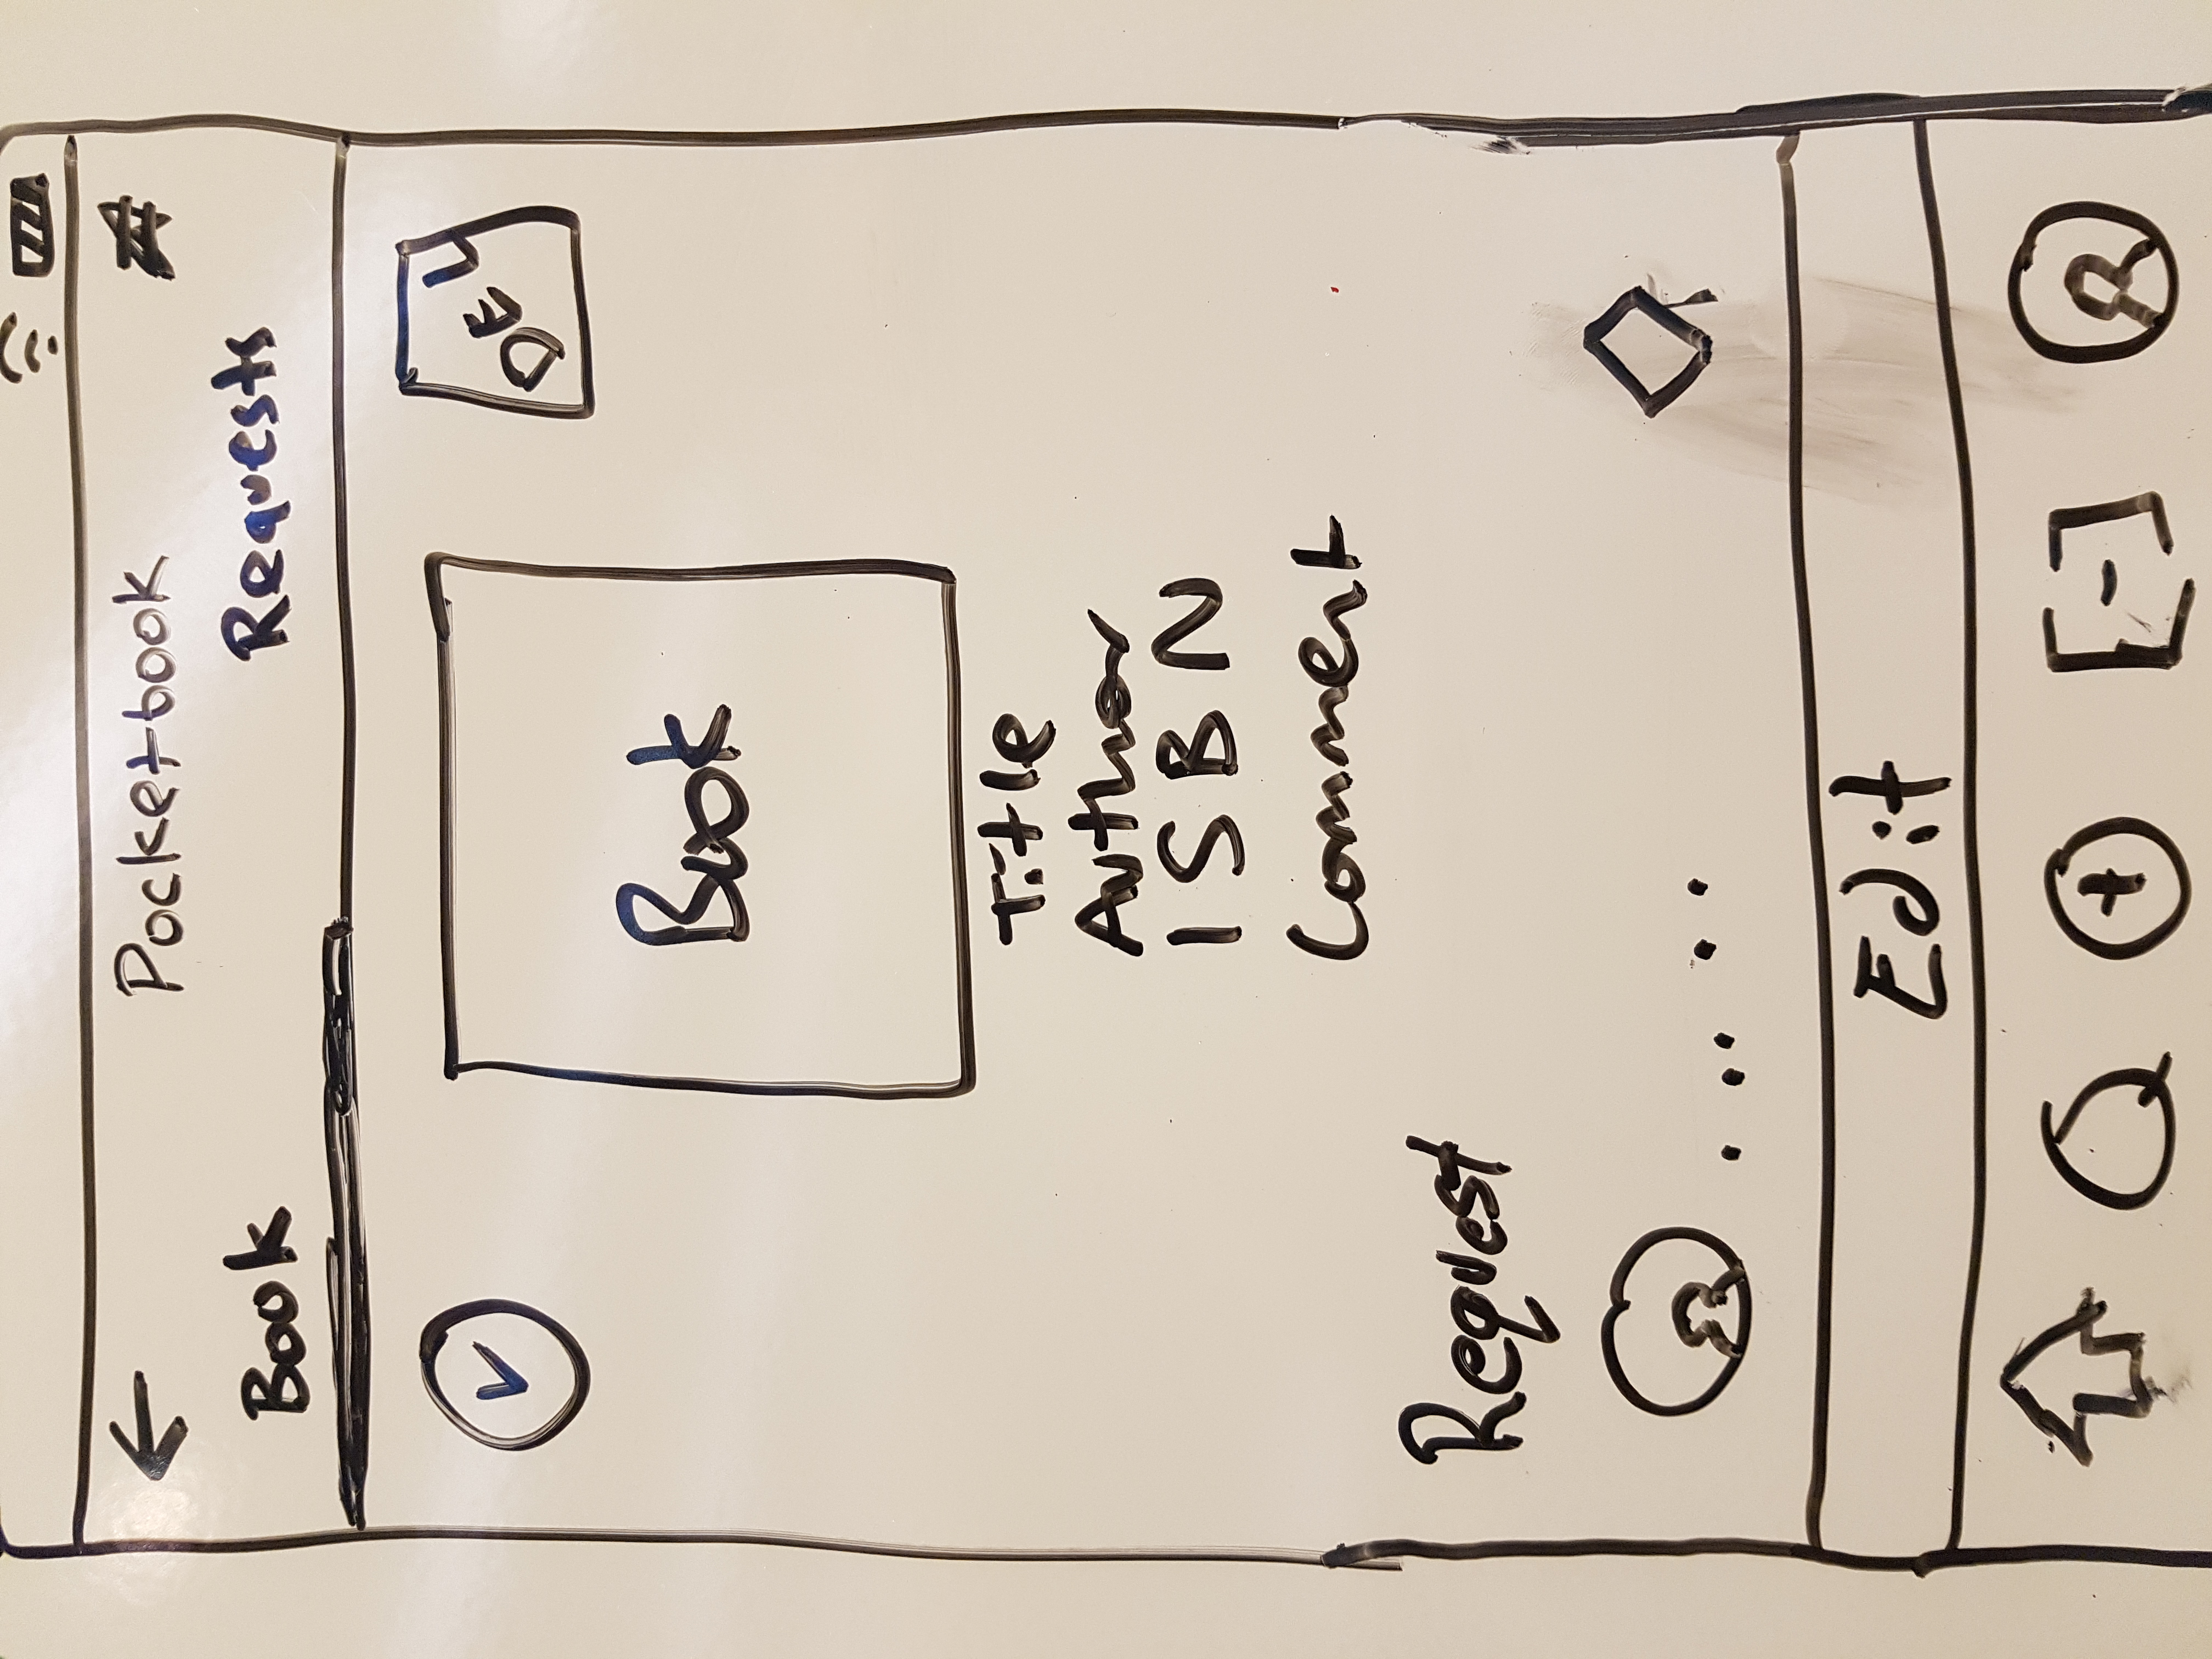 Pocketbook
Book Requests
Book
Title
Author
ISBN
Comment
Request
Edit